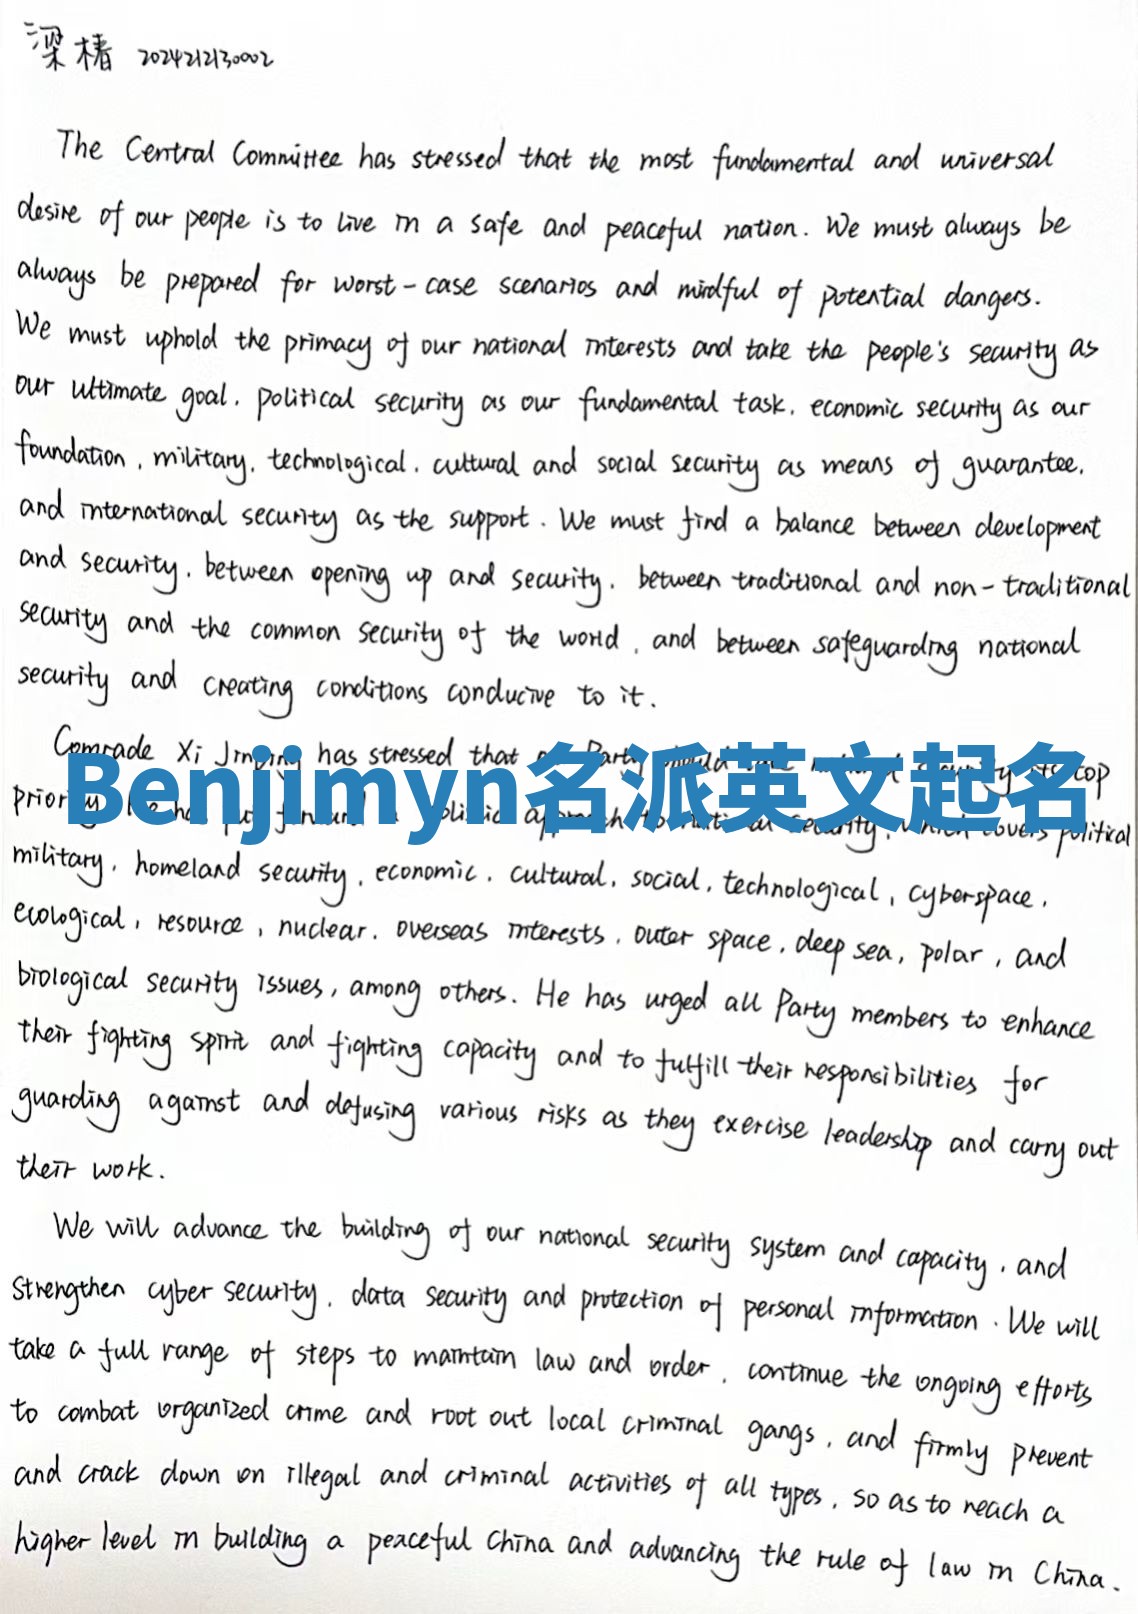 梁椿 2024212130002
The Central Committee has stressed that the most fundamental and universal
desire of our people is to live in a safe and peaceful nation. We must always be
always be prepared for worst-case scenarios and mindful of potential dangers.
We must uphold the primacy of our national interests and take the people's security as
our ultimate goal, political security as our fundamental task, economic security as our
foundation, military, technological, cultural and social security as means of guarantee,
and international security as the support. We must find a balance between development
and security, between opening up and security, between traditional and non-traditional
security and the common security of the world, and between safeguarding national
security and creating conditions conducive to it.
Comrade Xi Jinping has stressed that Party top
Benjimyn名派英文起名
priority security, which covers political
military, homeland security, economic, cultural, social, technological, cyberspace,
ecological, resource, nuclear, overseas interests, outer space, deep sea, polar, and
biological security issues, among others. He has urged all Party members to enhance
their fighting spirit and fighting capacity and to fulfill their responsibilities for
guarding against and defusing various risks as they exercise leadership and carry out
their work.
We will advance the building of our national security system and capacity, and
strengthen cyber security, data security and protection of personal information. We will
take a full range of steps to maintain law and order, continue the ongoing efforts
to combat organized crime and root out local criminal gangs, and firmly prevent
and crack down on illegal and criminal activities of all types, so as to reach a
higher level in building a peaceful China and advancing the rule of law in China.